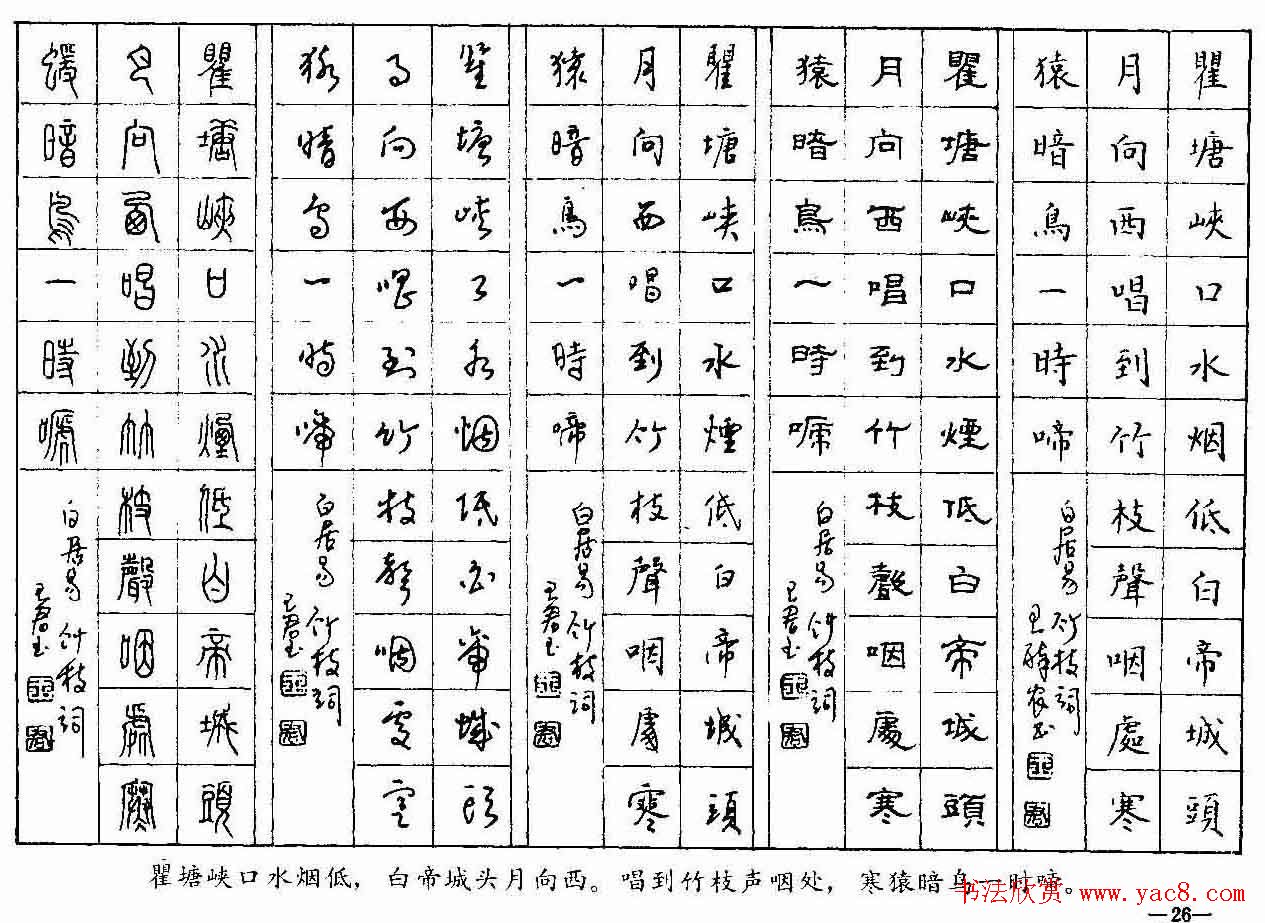 瞿塘峽口水烟低白帝城頭
月向西唱到竹枝聲咽處寒
猿暗鳥一時啼
白居易竹枝詞
瞿塘峽口水煙低白帝城頭
月向西唱到竹枝聲咽處寒
猿暗鳥一時啼
白居易竹枝詞
瞿塘峽口水煙低白帝城頭
月向西唱到竹枝聲咽處寒
猿暗鳥一時啼
白居易竹枝詞
瞿塘峽口水烟低白帝城頭
月向西唱到竹枝聲咽處寒
猿暗鳥一時啼
白居易竹枝詞
瞿塘峽口水煙低白帝城頭
月向西唱到竹枝聲咽處寒
猨暗鳥一時嗁
白居易竹枝詞
瞿塘峡口水烟低，白帝城头月向西。唱到竹枝声咽处，寒猿暗鸟一时啼。
书法欣赏 www.yac8.com
—26—